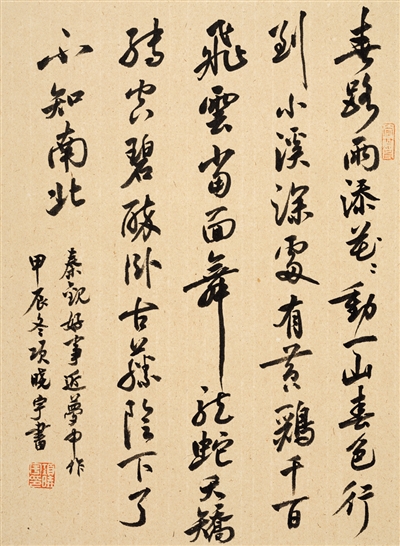 春路雨添花〻動一山春色行
到小溪深處有黄鸝千百
飛雲當面舞龍蛇夭矯
轉空碧醉卧古藤陰下了
不知南北
秦觀好事近夢中作
甲辰冬項曉宇書